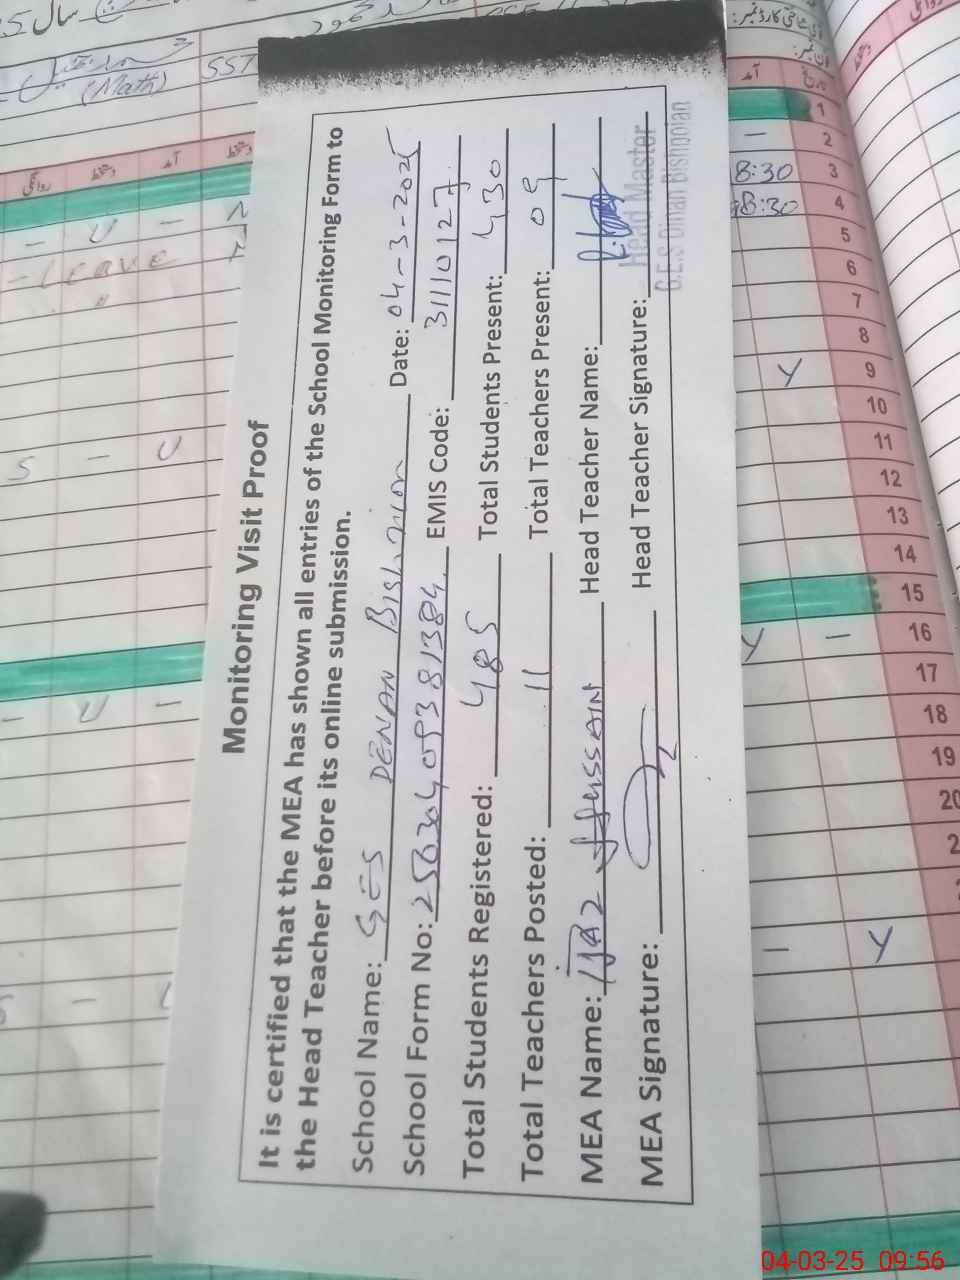 Monitoring Visit Proof
It is certified that the MEA has shown all entries of the School Monitoring Form to
the Head Teacher before its online submission.
School Name: GES DENAN Bishnion Date: 04-3-2025
School Form No: 25630409381384 EMIS Code: 31110127
Total Students Registered: 485 Total Students Present: 430
Total Teachers Posted: 11 Total Teachers Present: 09
MEA Name: IJAZ HUSSAIN Head Teacher Name:
MEA Signature: Head Teacher Signature:
Head Master
(Math)
SST
سال
روانگی
دستخط
آمد
دستخط
- U -
-Leave
S - U
- U -
S -
آمد
تاریخ
1
- 2
8:30 3
8:30 4
5
6
7
8
Y 9
10
11
12
13
14
15
Y - 16
17
18
19
20
- Y
04-03-25 09:56